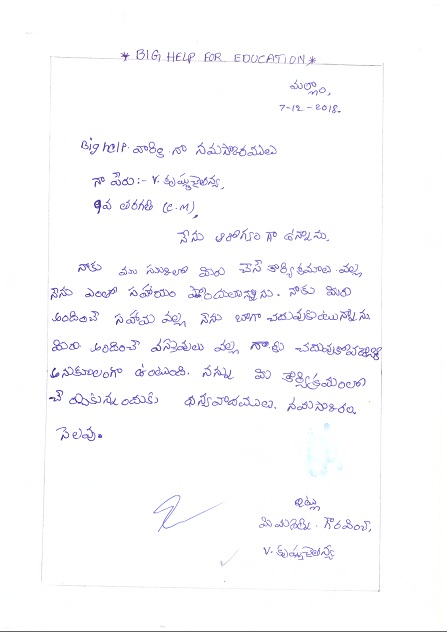 * BIG HELP FOR EDUCATION *
మల్లాం,
7-12-2018.
Big help వారికి నా నమస్కారములు
నా పేరు :- V. కృష్ణచైతన్య,
9వ తరగతి (E.M),
నేను ఆరోగ్యం గా ఉన్నాను.
నాకు మా స్కూలులో మీరు చేసే కార్యక్రమాల వల్ల
నేను ఎంతో సహాయం పొందుతున్నాను. నాకు మీరు
అందించే సహాయ వల్ల నేను బాగా చదువుకుంటున్నాను
మీరు అందించే వస్తువులు వల్ల నాకు
అనుకూలంగా ఉంటుంది. నన్ను మీ కార్యక్రమంలో
ధన్యవాదములు. నమస్కారం.
సెలవు.
ఇట్లు
V. కృష్ణచైతన్య